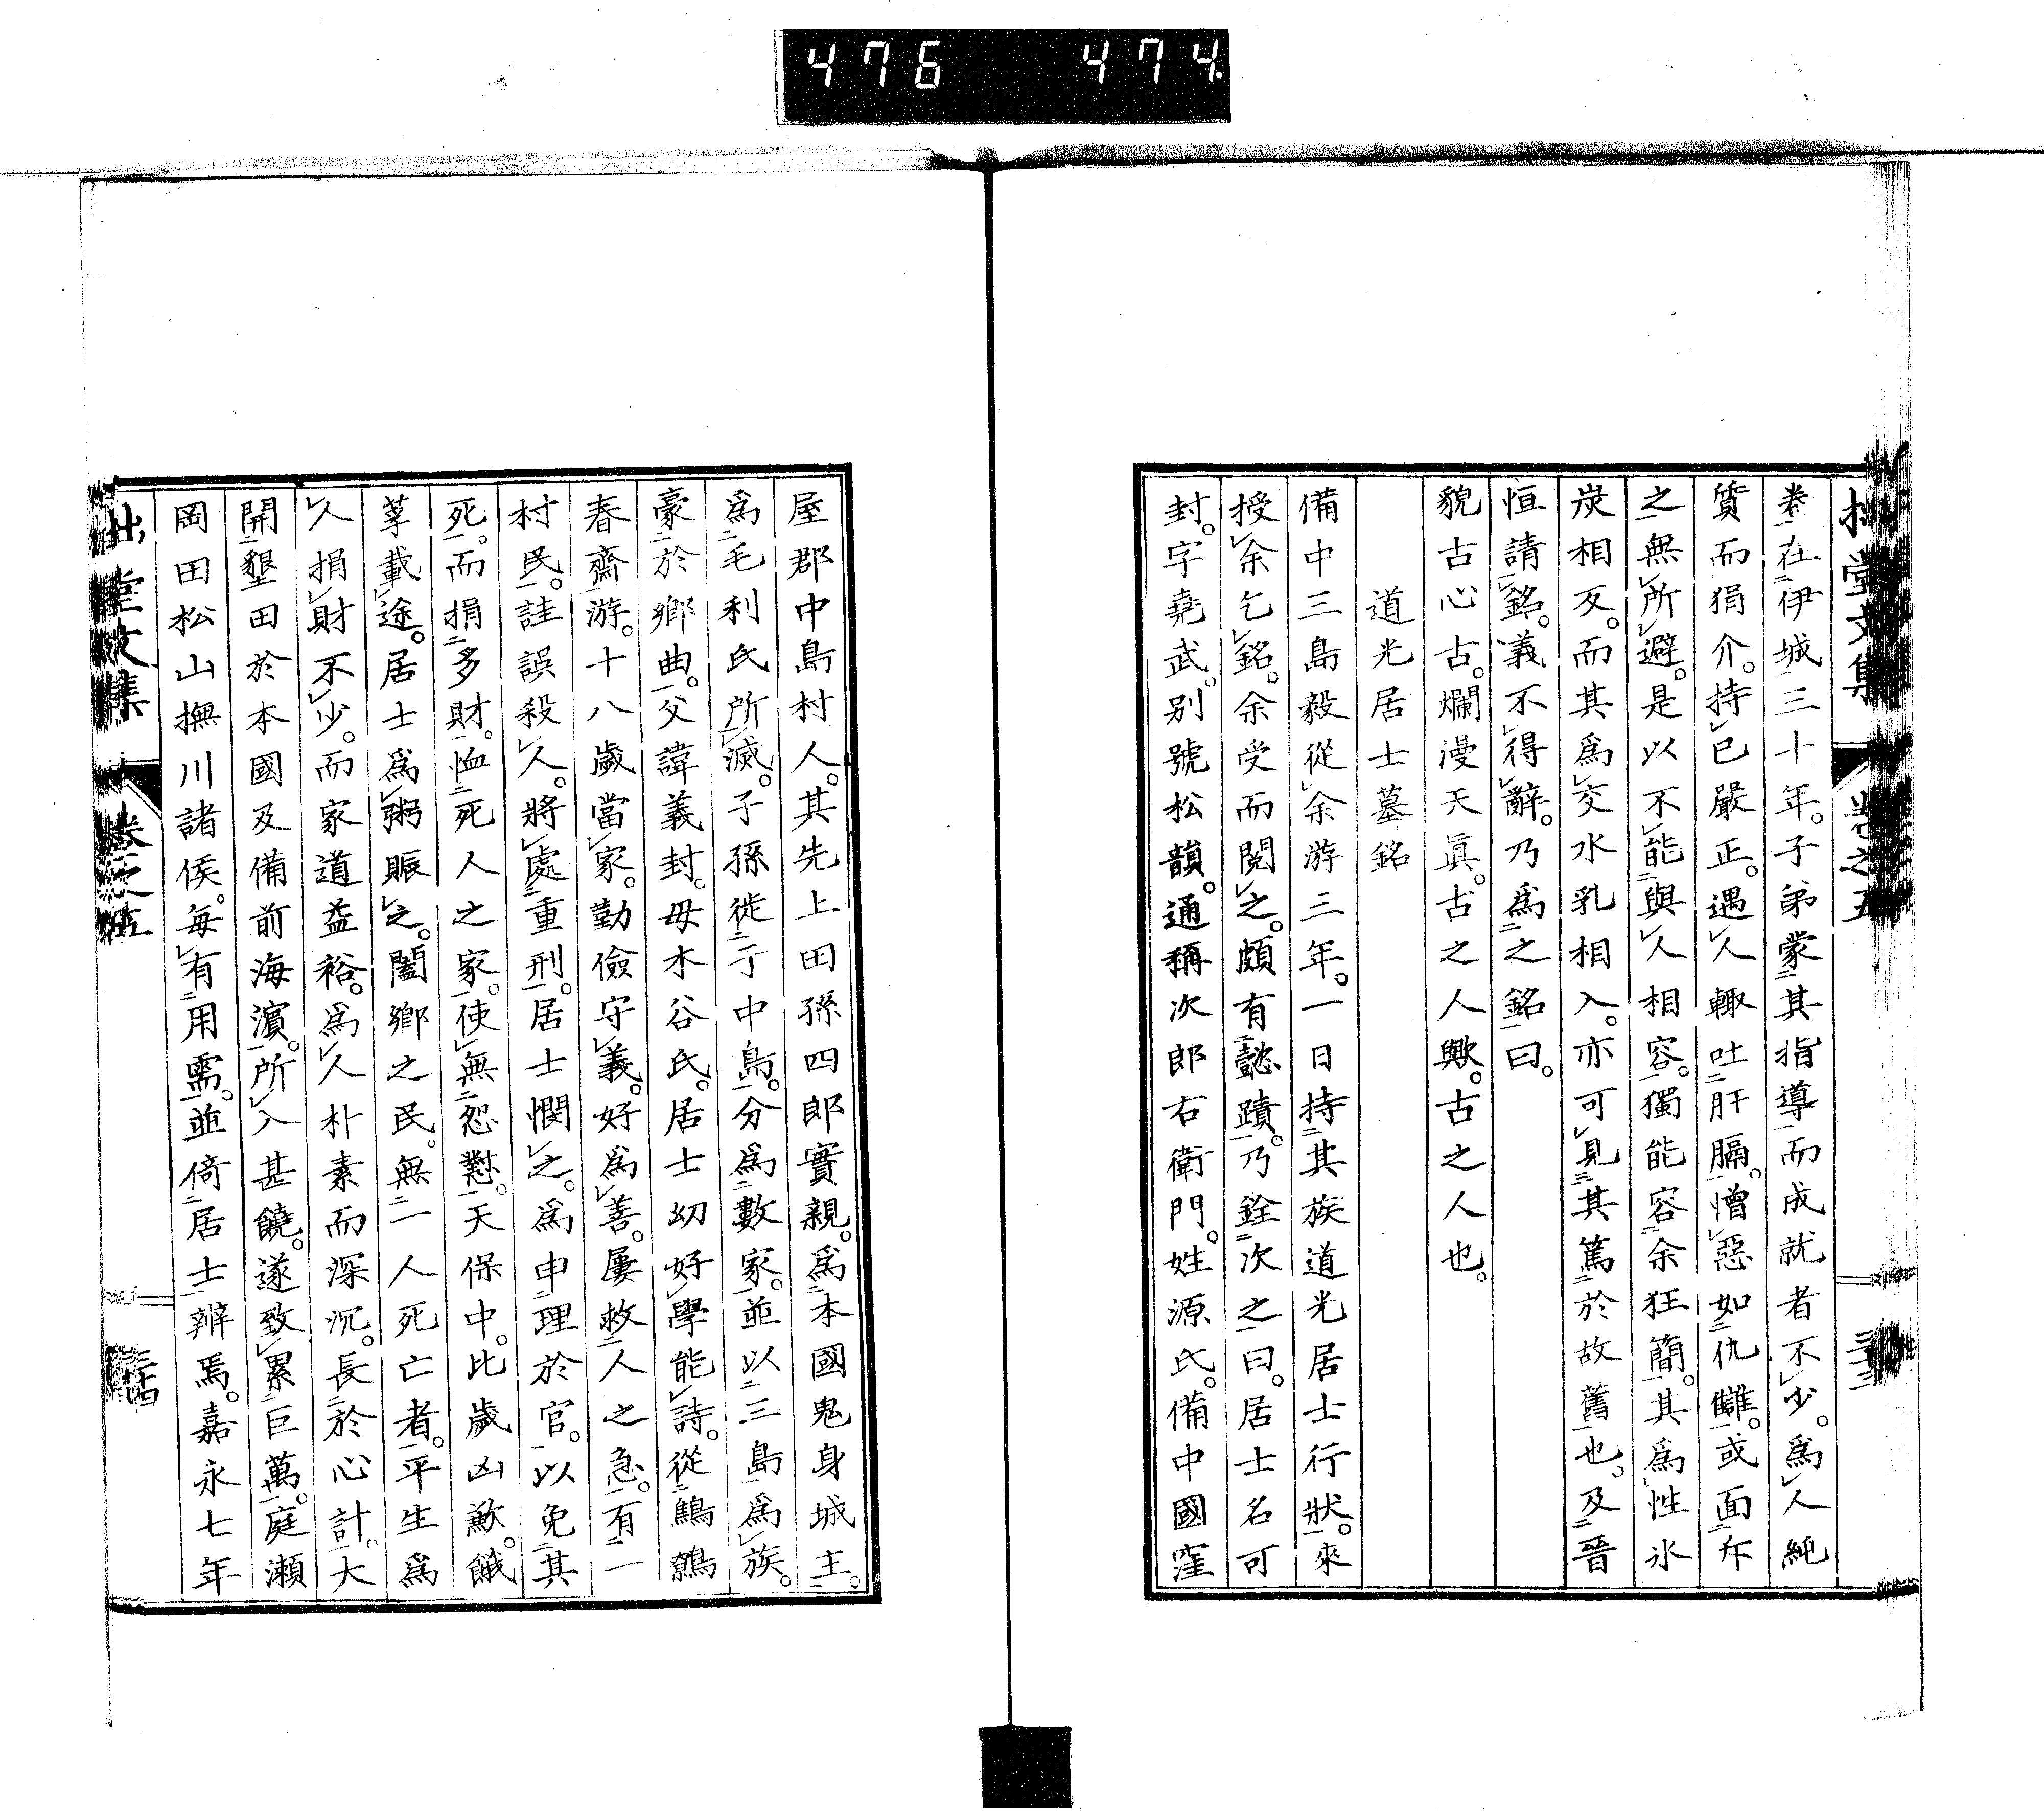 476 474
卷在伊城三十年。子弟蒙其指導而成就者不少。爲人純
質而狷介。持已嚴正。遇人輙吐肝膈。憎惡如仇讎。或面斥
之無所避。是以不能與人相容。獨能容余狂簡。其爲性氷
炭相反。而其爲交水乳相入。亦可見其篤於故舊也。及晉
恒請銘。義不得辭。乃爲之銘曰。
貌古心古。爛漫天眞。古之人歟。古之人也。
道光居士墓銘
備中三島毅從余游三年。一日持其族道光居士行狀。來
授余乞銘。余受而閱之。頗有懿蹟。乃銓次之曰。居士名可
封。字堯武。別號松韻。通稱次郎右衛門。姓源氏。備中國窪
屋郡中島村人。其先上田孫四郎實親。爲本國鬼身城主。
爲毛利氏所滅。子孫徙于中島。分爲數家。並以三島爲族。
豪於鄉曲。父諱義封。母木谷氏。居士幼好學能詩。從鷦鷯
春齋游。十八歲當家。勤儉守義。好爲善。屢救人之急。有一
村民。詿誤殺人。將處重刑。居士憫之。爲申理於官。以免其
死。而捐多財。恤死人之家。使無怨懟。天保中。比歲凶歉。餓
莩載途。居士爲粥賑之。闔鄉之民。無一人死亡者。平生爲
人捐財不少。而家道益裕。爲人朴素而深沉。長於心計。大
開墾田於本國及備前海濵。所入甚饒。遂致累巨萬。庭瀨
岡田松山撫川諸侯。每有用需。並倚居士辨焉。嘉永七年
拙堂文集 卷之五 三十四